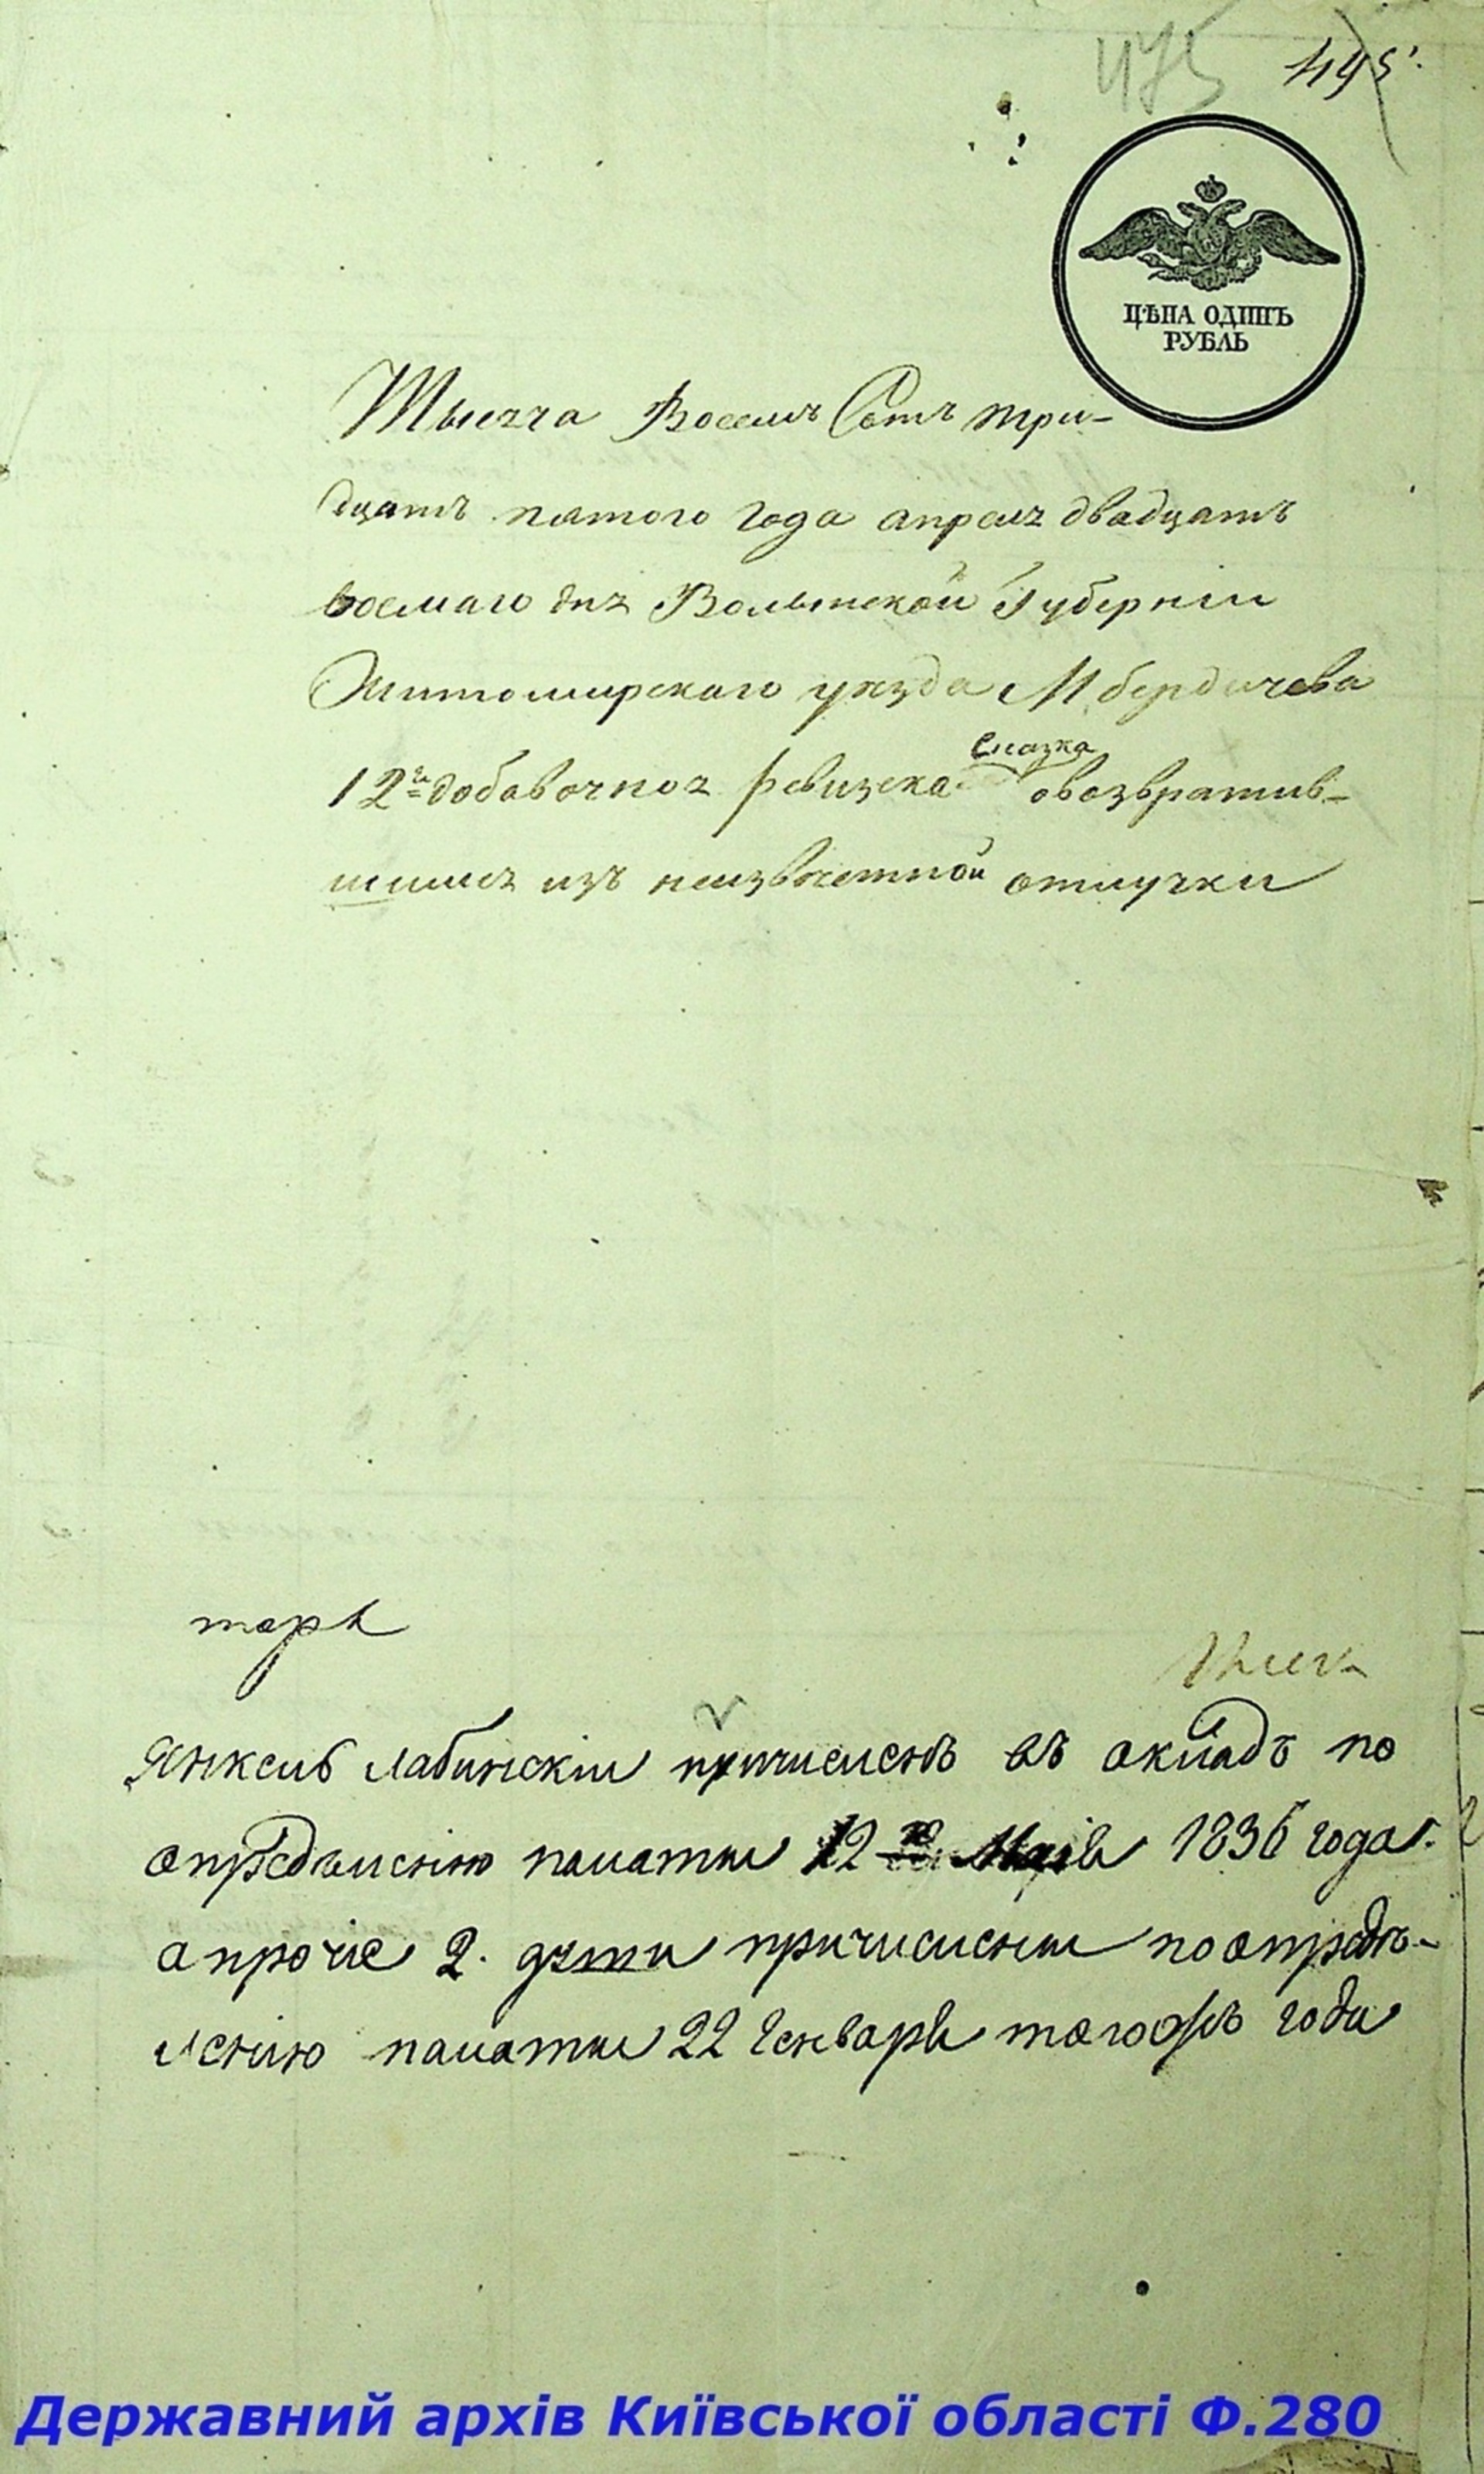 475 495
ЦѢНА ОДИНЪ
РУБЛЬ
Тысяча Восемъ Сотъ три-
дцать пятого года апреля двадцать
восмаго дня Волынской Губерніи
Житомирскаго уезда М бердичева
Сказка
12я добавочноя ревизска овозвратив-
шимся изъ неизвестной отлучки
Янкель Лабинскій причисленъ въ окладъ по
опредѣленію палаты 12 го Маія 1836 года.
а прочіе 2. дѣти причислены поопредѣ-
ленію палаты 22 Генваря тогожъ года
Державний архів Київської області Ф.280